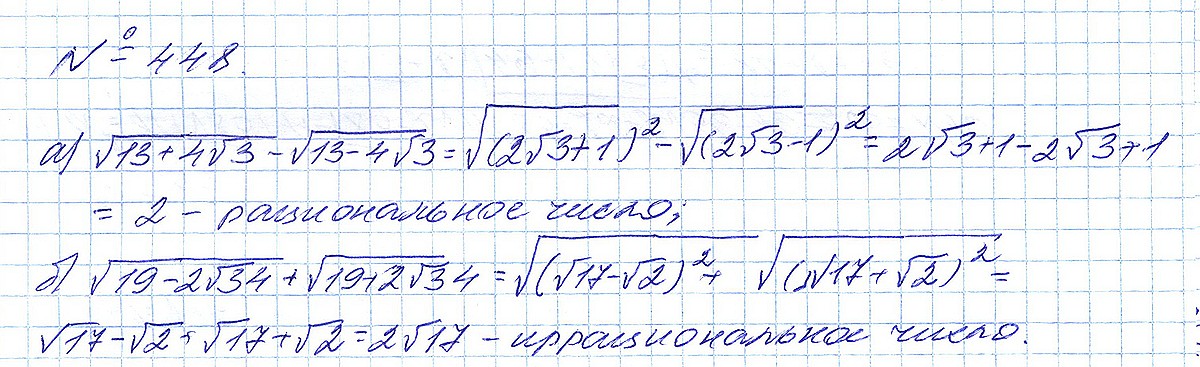 № 448.
а) √13+4√3 - √13-4√3 = √(2√3+1)² - √(2√3-1)² = 2√3+1-2√3+1
= 2 - рациональное число;
б) √19-2√34 + √19+2√34 = √(√17-√2)² + √(√17+√2)² =
√17-√2+√17+√2=2√17 - иррациональное число.